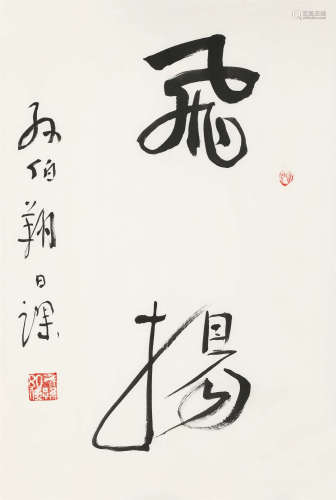 飛揚
孙伯翔日课